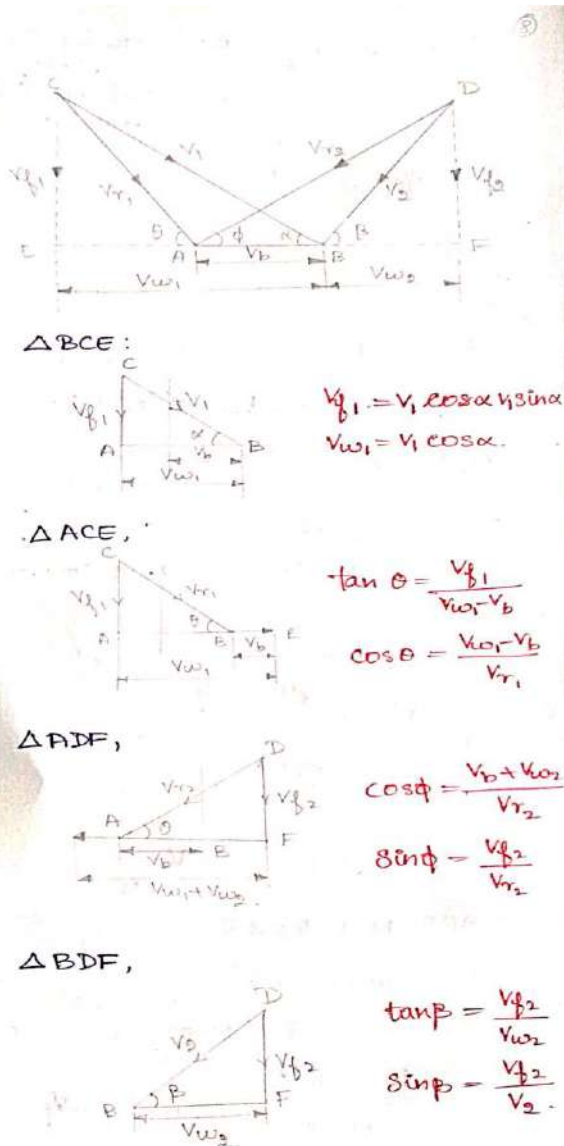 8
C
D
Vf1
Vr1
V1
Vr2
V2
Vf2
E
θ
A
ϕ
Vb
α
B
β
F
Vw1
Vw2
△BCE:
C
Vf1
V1
α
A
Vb
B
Vw1
Vf1 = V1 cosα V1 sinα
Vw1 = V1 cosα.
△ACE,
C
Vf1
Vr1
θ
A
B
E
Vb
Vw1
tan θ = Vf1 / Vw1-Vb
cosθ = Vw1-Vb / Vr1
△ADF,
D
Vr2
Vf2
A
θ
Vb
B
F
Vw1+Vw2
cosϕ = Vb+Vw2 / Vr2
sinϕ = Vf2 / Vr2
△BDF,
D
V2
Vf2
B
β
F
Vw2
tanβ = Vf2 / Vw2
sinβ = Vf2 / V2.